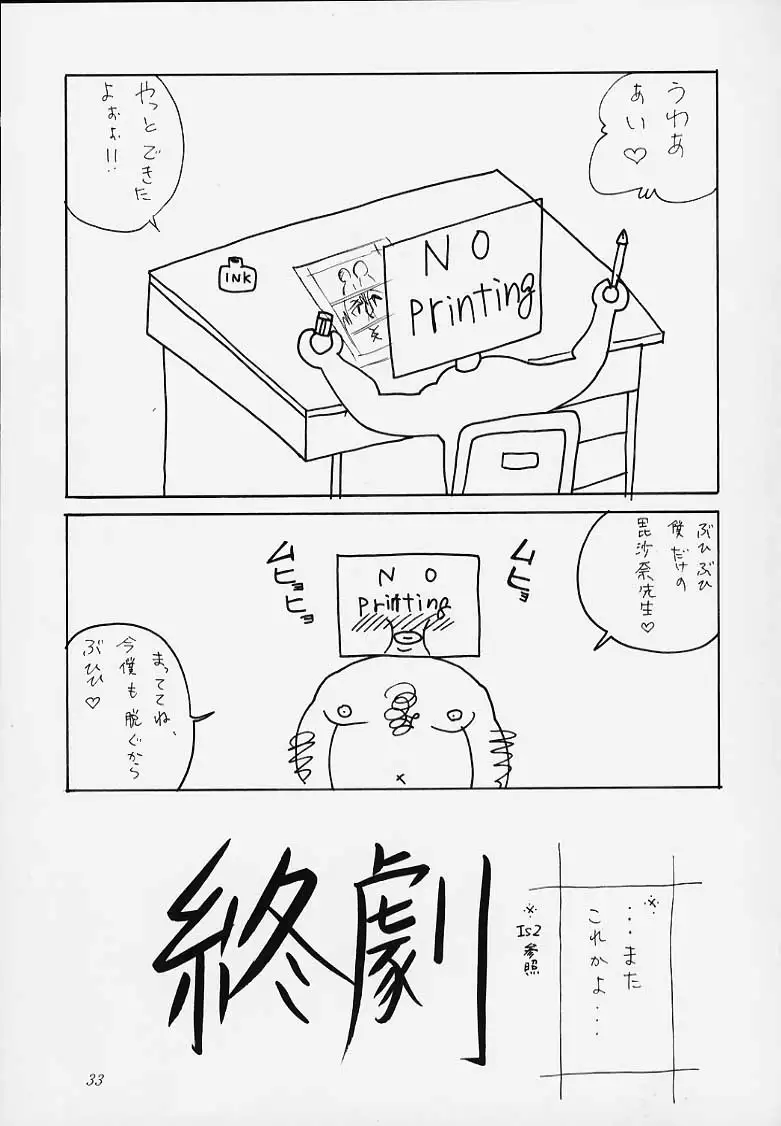 うわあ
あい♡
やっとできた
よぉぉ!!
INK
NO
Printing
ぶひぶひ
僕だけの
毘沙奈先生♡
ムヒョ
ムヒョヒョ
NO
Printing
まっててね、
今僕も脱ぐから
ぶひひ♡
終劇
※
…また
これかよ…
※Is2参照
33